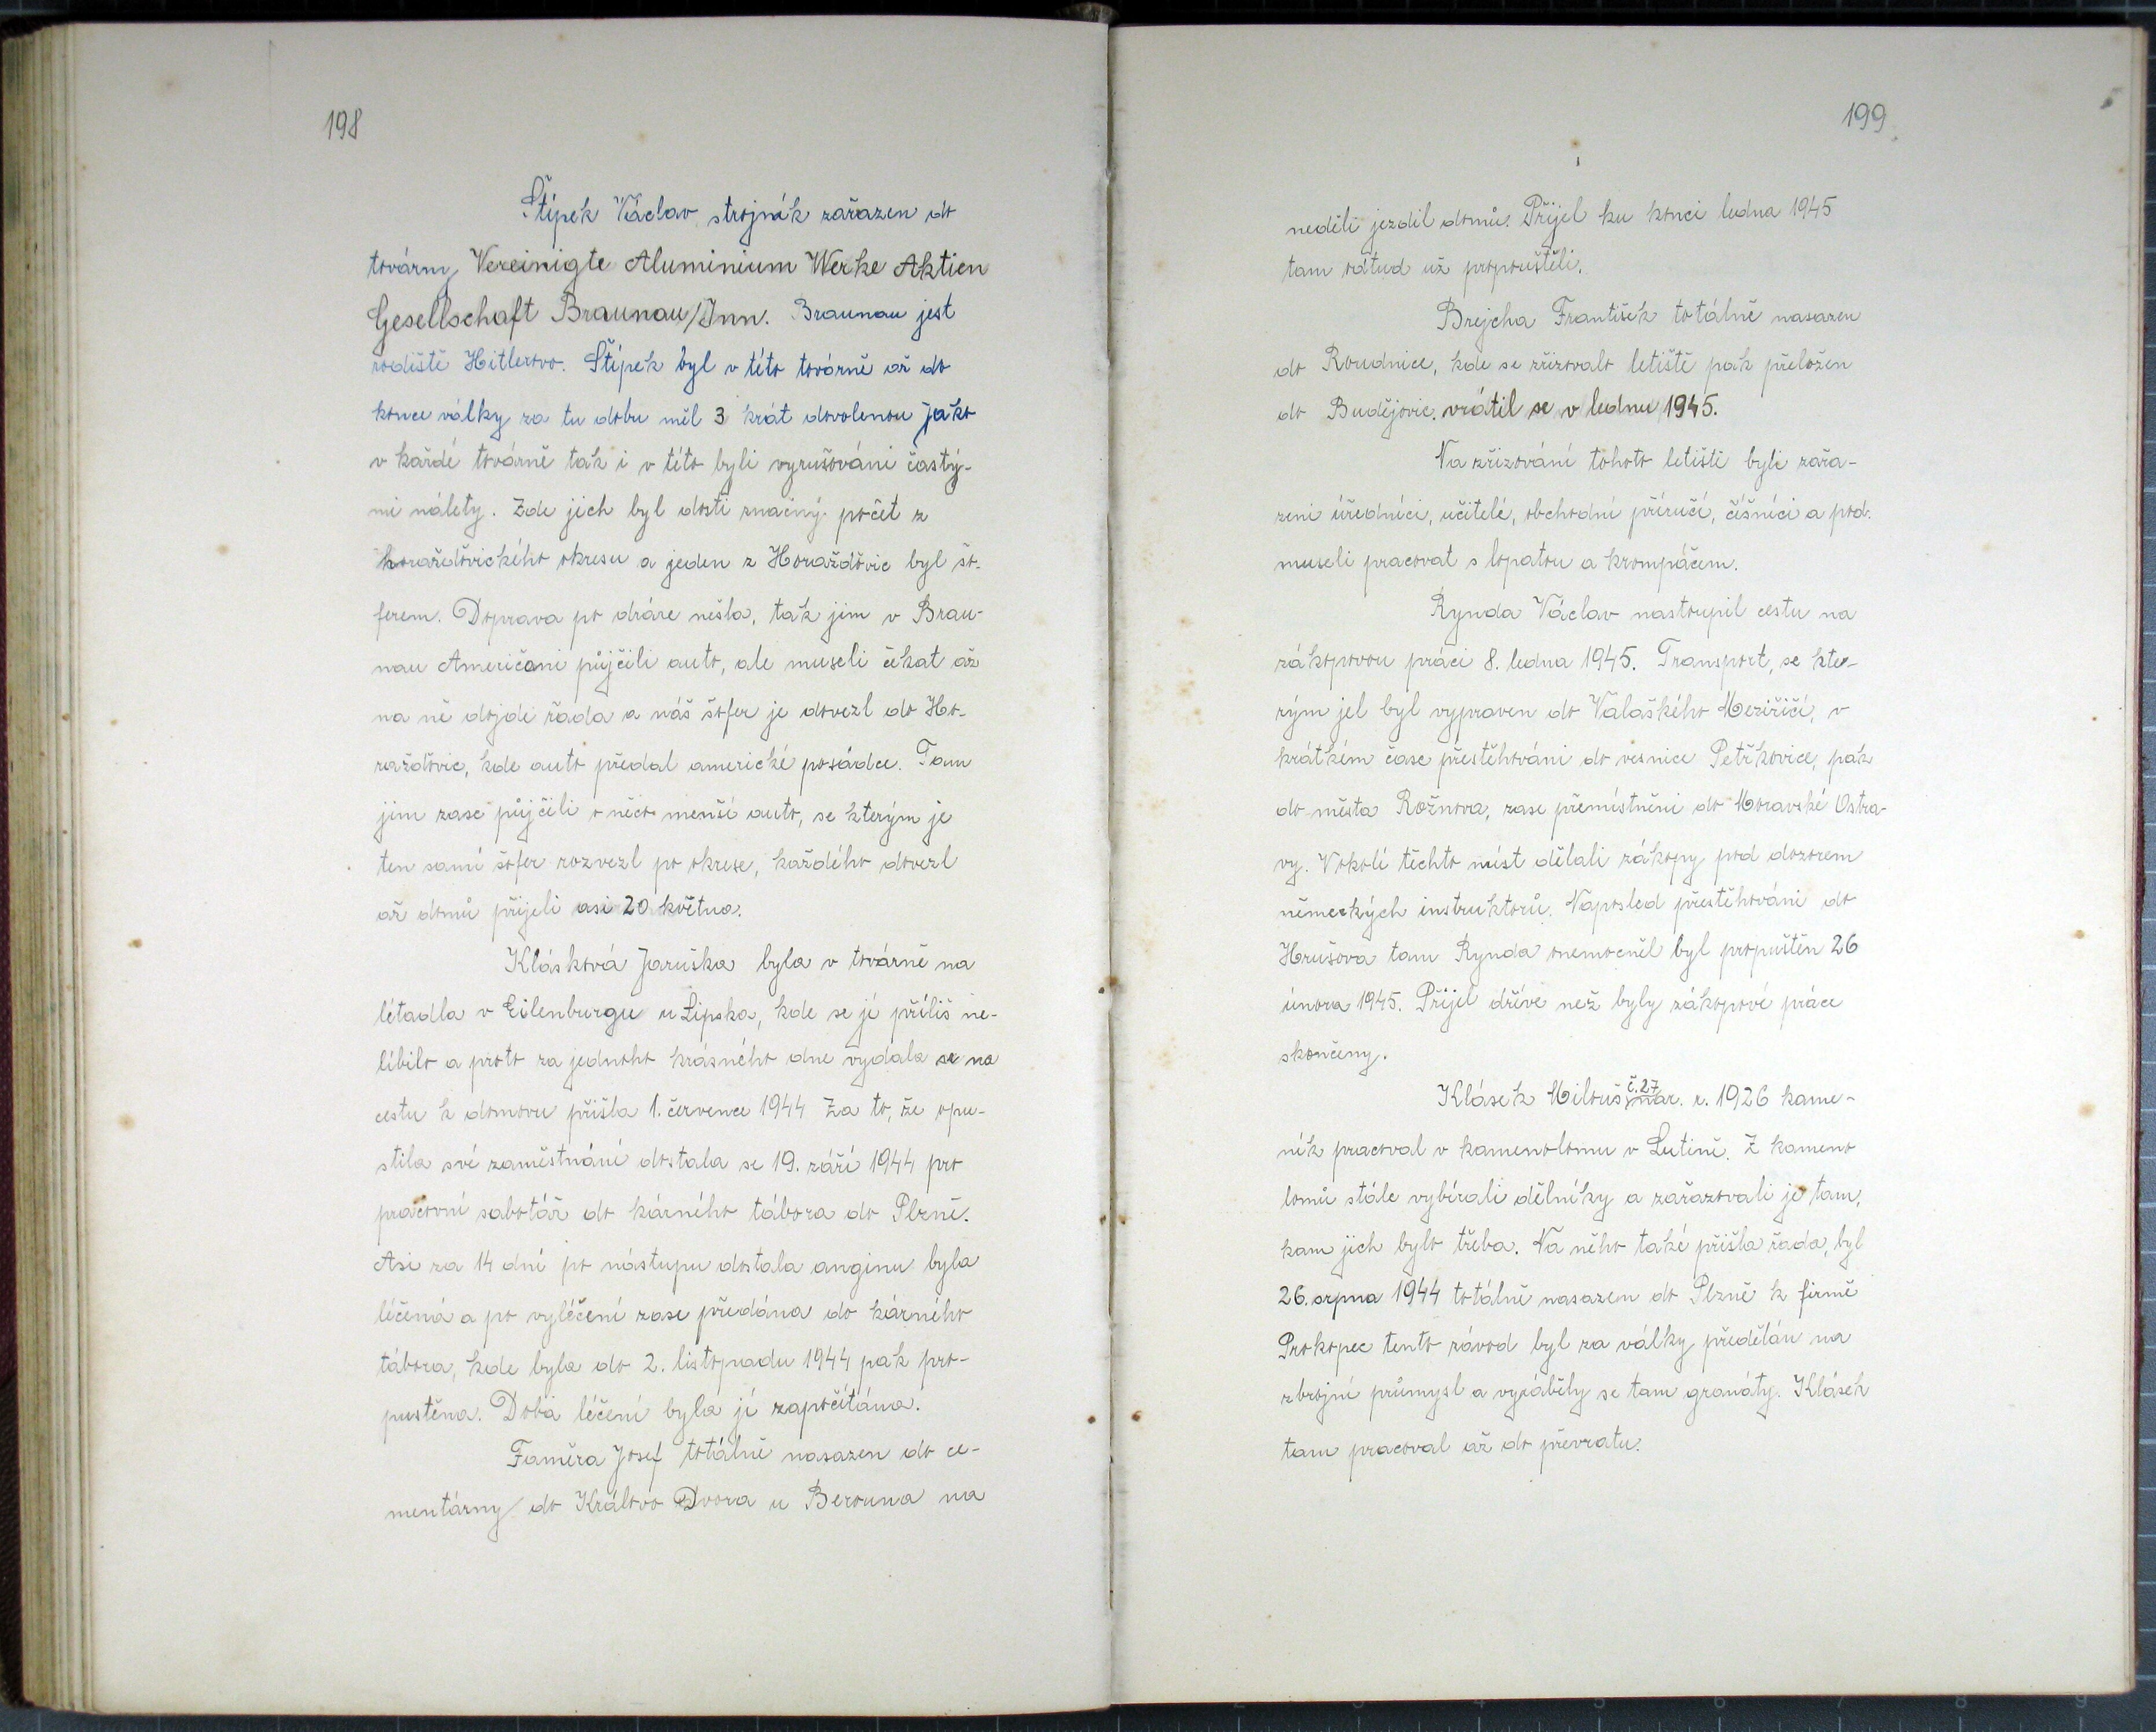 198
Štípek Václav strojník zařazen do
továrny Vereinigte Aluminium Werke Aktien
Gesellschaft Braunau/Inn. Braunau jest
rodiště Hitlerovo. Štípek byl v této továrně až do
konce války za tu dobu měl 3 krát dovolenou jako
v každé továrně tak i v této byli vyrušováni častý-
mi nálety. Zde jich byl dosti značný počet z
horažďovického okresu a jeden z Horažďovic byl šo-
ferem. Doprava po dráze nešla, tak jim v Brau-
nau Američani půjčili auto, ale museli čekat až
na ně dojde řada a náš šofer je dovezl do Ho-
ražďovic, kde auto předal americké posádce. Tam
jim zase půjčili o něco menší auto, se kterým je
ten samí šofer rozvezl po okrese, každého dovezl
až domů přijeli asi 20 května.
Klásková Jaruška byla v továrně na
létadla v Eilenburgu u Lipska, kde se jí příliš ne-
líbilo a proto za jednoho krásného dne vydala se na
cestu k domovu přišla 1. července 1944 Za to, že opu-
stila své zaměstnání dostala se 19. září 1944 pro
pracovní sabotáž do kárného tábora do Plzně.
Asi za 14 dní po nástupu dostala anginu byla
léčená a po vyléčení zase předána do kárného
tábora, kde byla do 2. listopadu 1944 pak pro-
puštěna. Doba léčení byla jí započítána.
Faměra Josef totálně nasazen do ce-
mentárny do Králova Dvora u Berouna na
199
neděli jezdil domů. Přijel ku konci ledna 1945
tam odtud už propouštěli.
Brejcha František totálně nasazen
do Roudnice, kde se zřizovalo letiště pak přeložen
do Budějovic. vrátil se v lednu 1945.
Na zřizování tohoto letiště byli zařa-
zeni úředníci, učitelé, obchodní příručí, číšníci a pod.
museli pracovat s lopatou a krompáčem.
Rynda Václav nastoupil cestu na
zákopovou práci 8. ledna 1945. Transport, se kte-
rým jel byl vypraven do Valaškého Meziříčí, v
krátkém čase přestěhováni do vesnice Petřkovice, pak
do města Rožnova, zase přemístněni do Moravské Ostra-
vy. V okolí těchto míst dělali zákopy pod dozorem
německých instruktorů. Naposled přestěhováni do
Hrušova tam Rynda onemocněl byl propuštěn 26
února 1945. Přijel dříve než byly zákopové práce
skončeny.
Klásek Milouš č. 27 nar. r. 1926 kame-
ník pracoval v kamenolomu v Lutině. Z kameno
lomů stále vybírali dělníky a zařazovali je tam,
kam jich bylo třeba. Na něho také přišla řada, byl
26. srpna 1944 totálně nasazen do Plzně k firmě
Prokopec tento závod byl za války předělán na
zbrojní průmysl a vyráběly se tam granáty. Klásek
tam pracoval až do převratu.